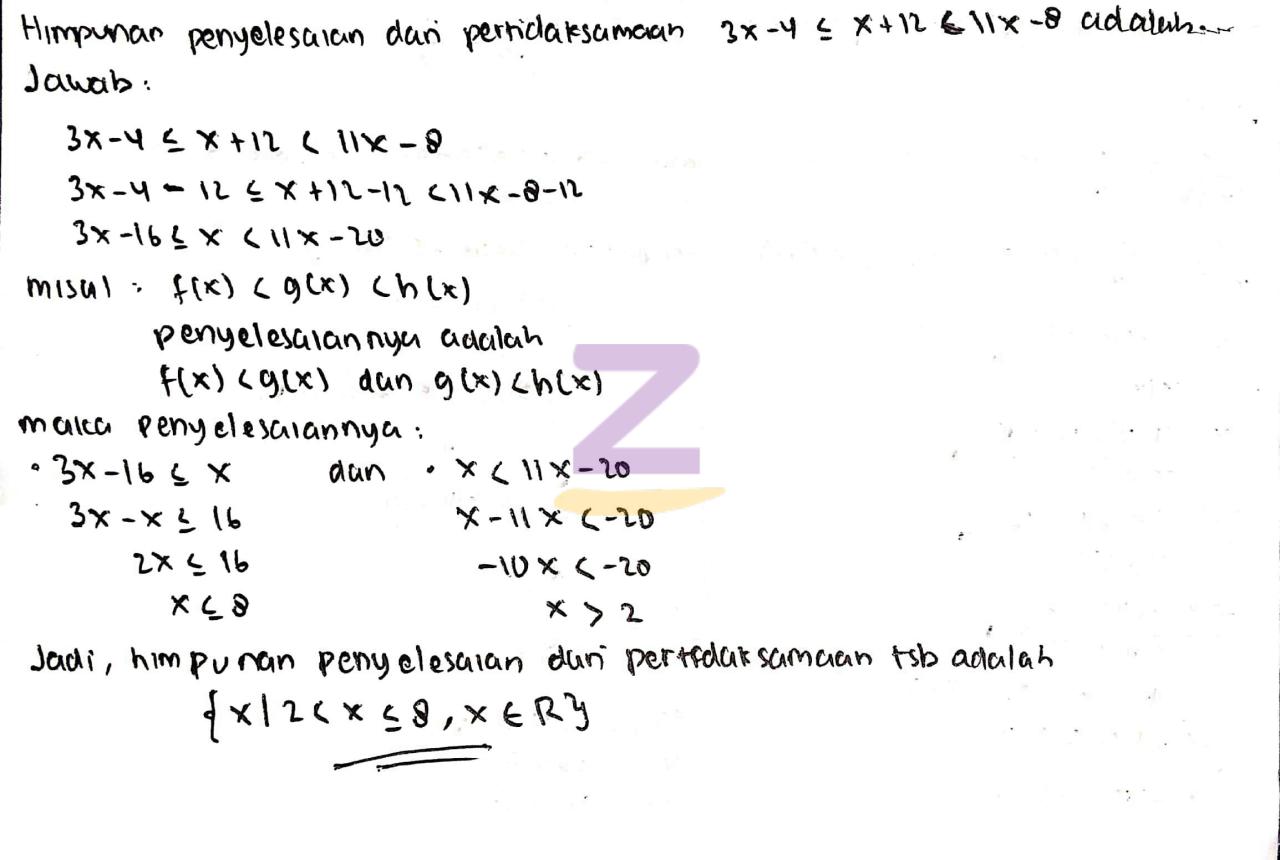 Himpunan penyelesaian dari pertidaksamaan 3x-4 ≤ x+12 ≤ 11x-8 adalah....
Jawab:
3x-4 ≤ x+12 < 11x-8
3x-4-12 ≤ x+12-12 < 11x-8-12
3x-16 ≤ x < 11x-20
misal: f(x) < g(x) < h(x)
penyelesaiannya adalah
f(x) < g(x) dan g(x) < h(x)
maka penyelesaiannya:
• 3x-16 ≤ x dan • x < 11x-20
3x-x ≤ 16 x-11x < -20
2x ≤ 16 -10x < -20
x ≤ 8 x > 2
Jadi, himpunan penyelesaian dari pertidaksamaan tsb adalah
{x|2<x≤8, x∈R}
Z